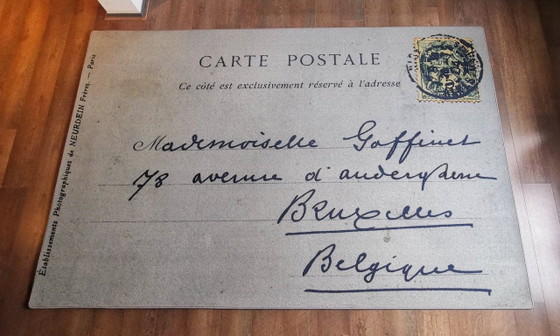 CARTE POSTALE
Ce côté est exclusivement réservé à l'adresse
Mademoiselle Goffinet
78 avenue d'auderghem
Bruxelles
Belgique
Établissements Photographiques de NEURDEIN Frères. — Paris